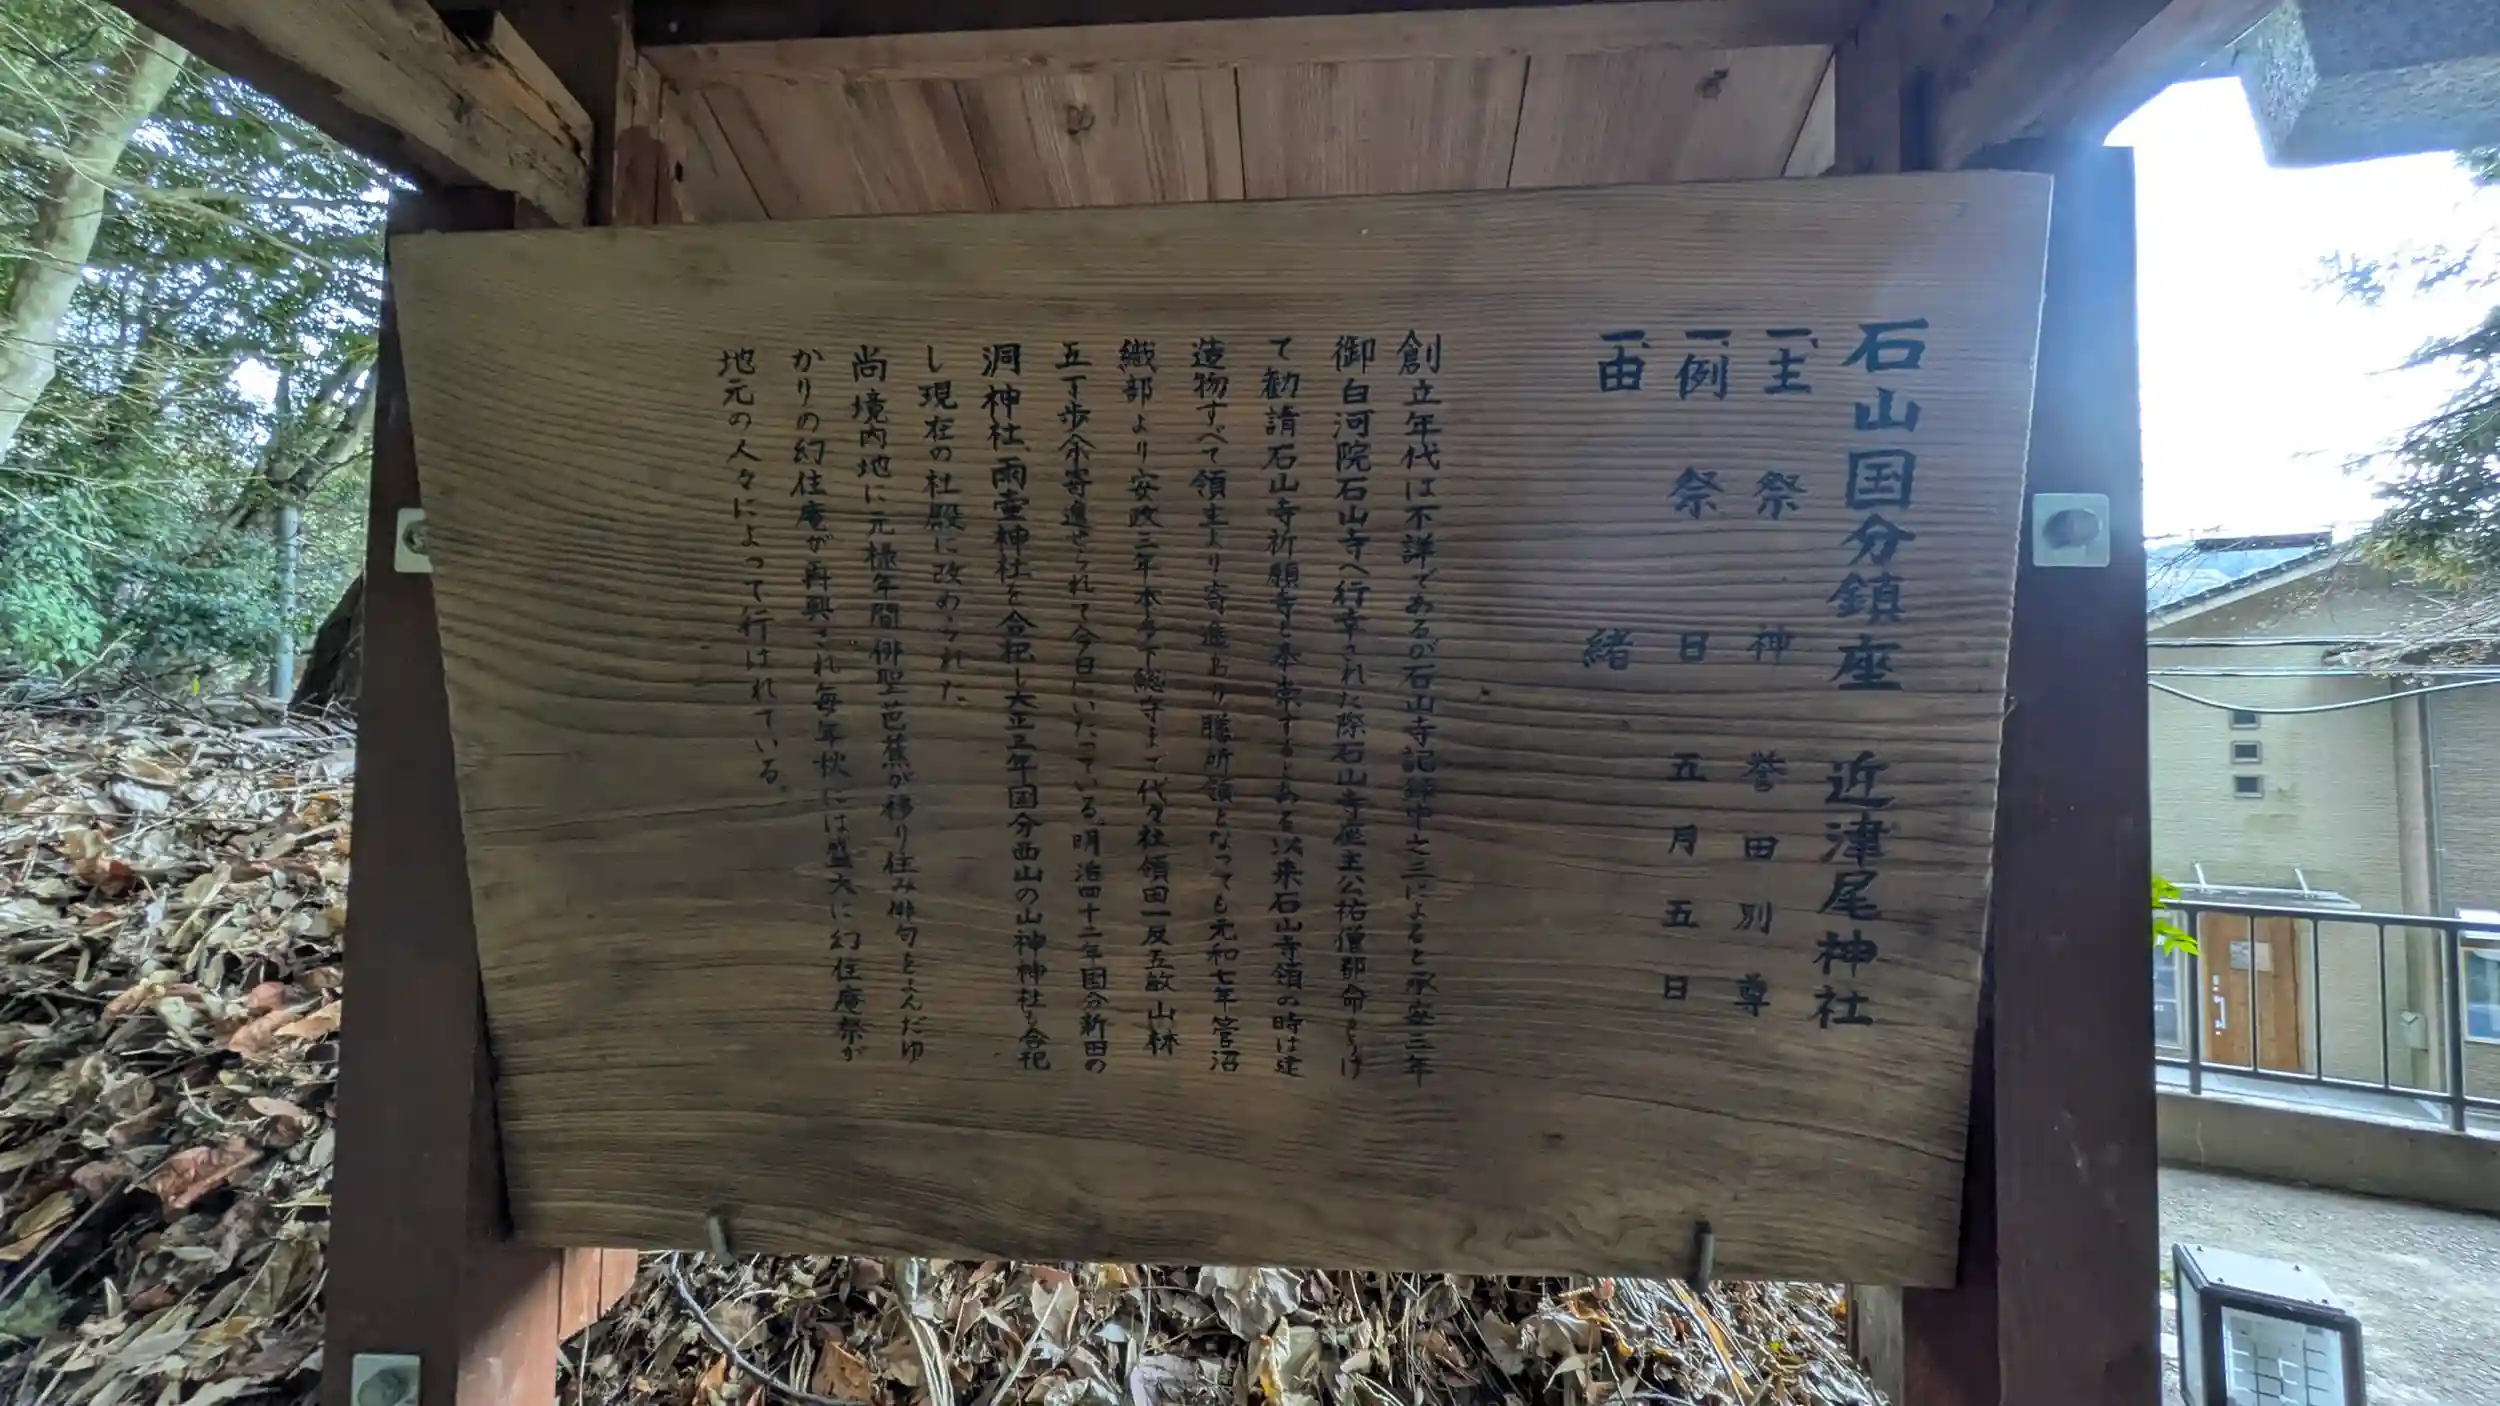 石山国分鎮座 近津尾神社
一、主祭神 誉田別尊
一、例祭日 五月五日
一、由緒
創立年代は不詳であるが石山寺記録中之三によると承安三年
御白河院石山寺へ行幸された際石山寺座主公祐僧都命をうけ
て勧請石山寺祈願寺と本崇するとある以来石山寺領の時は建
造物すべて領主より寄進あり膳所領となつても元和七年菅沼
織部より安政三年本多下総守まで代々社領田一反五畝山林
五丁歩余寄進せられて今日にいたっている。明治四十二年国分新田の
洞神社、雨壷神社を合祀し大正五年国分西山の山神神社も合祀
し現在の社殿に改められた
尚境内地に元禄年間俳聖芭蕉が移り住み俳句をよんだゆ
かりの幻住庵が再興され毎年秋には盛大に幻住庵祭が
地元の人々によって行はれている。